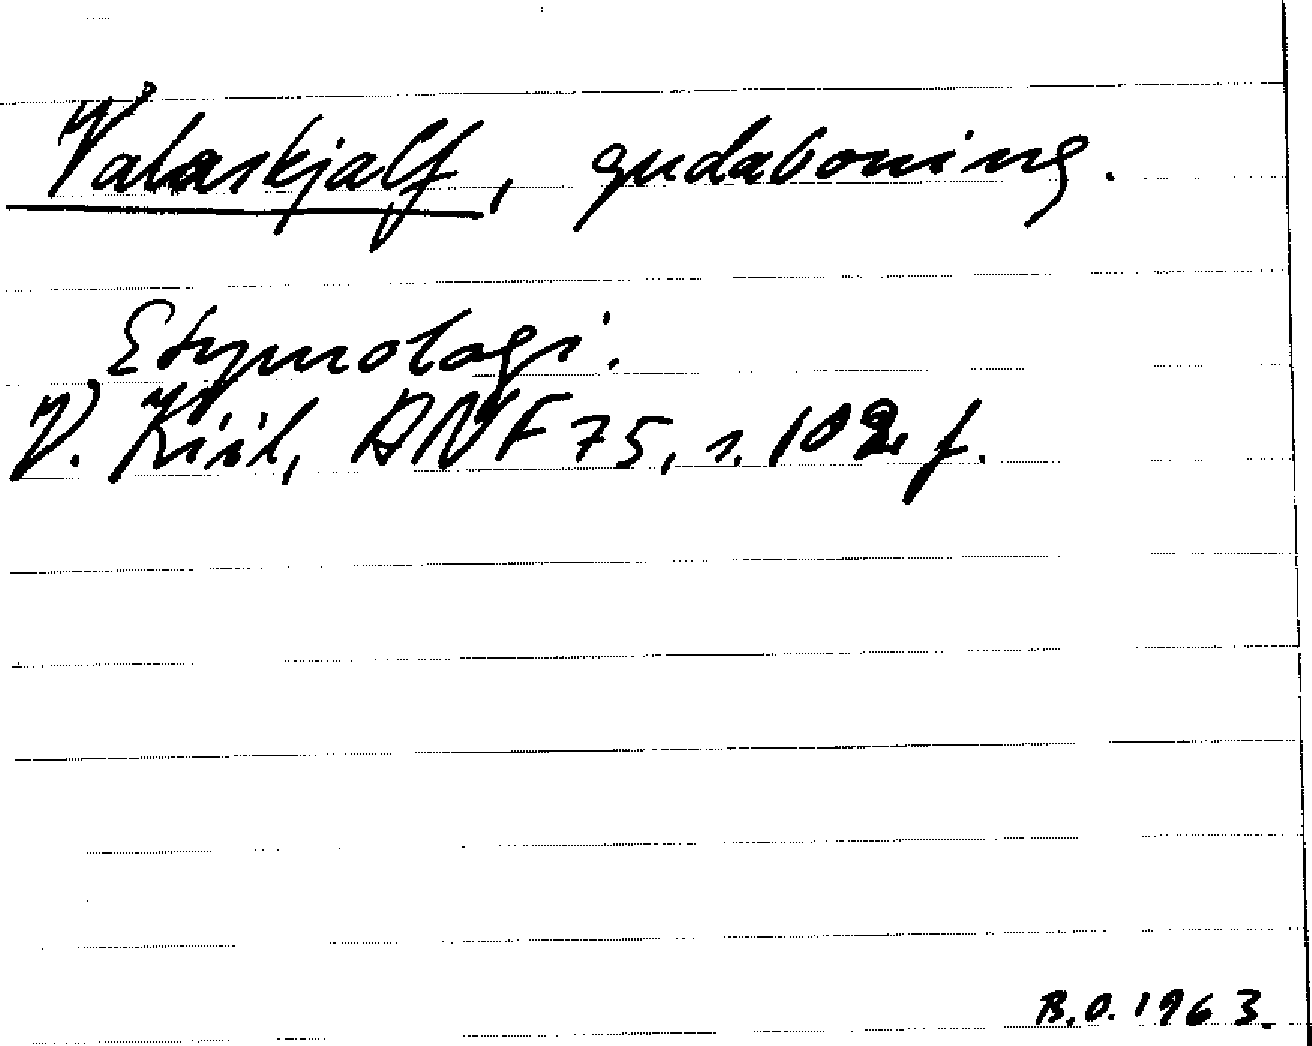 Valaskjalf, gudaboning.
Etymologi.
V. Kiil, ANF 75, s. 102 f.
B.O. 1963.